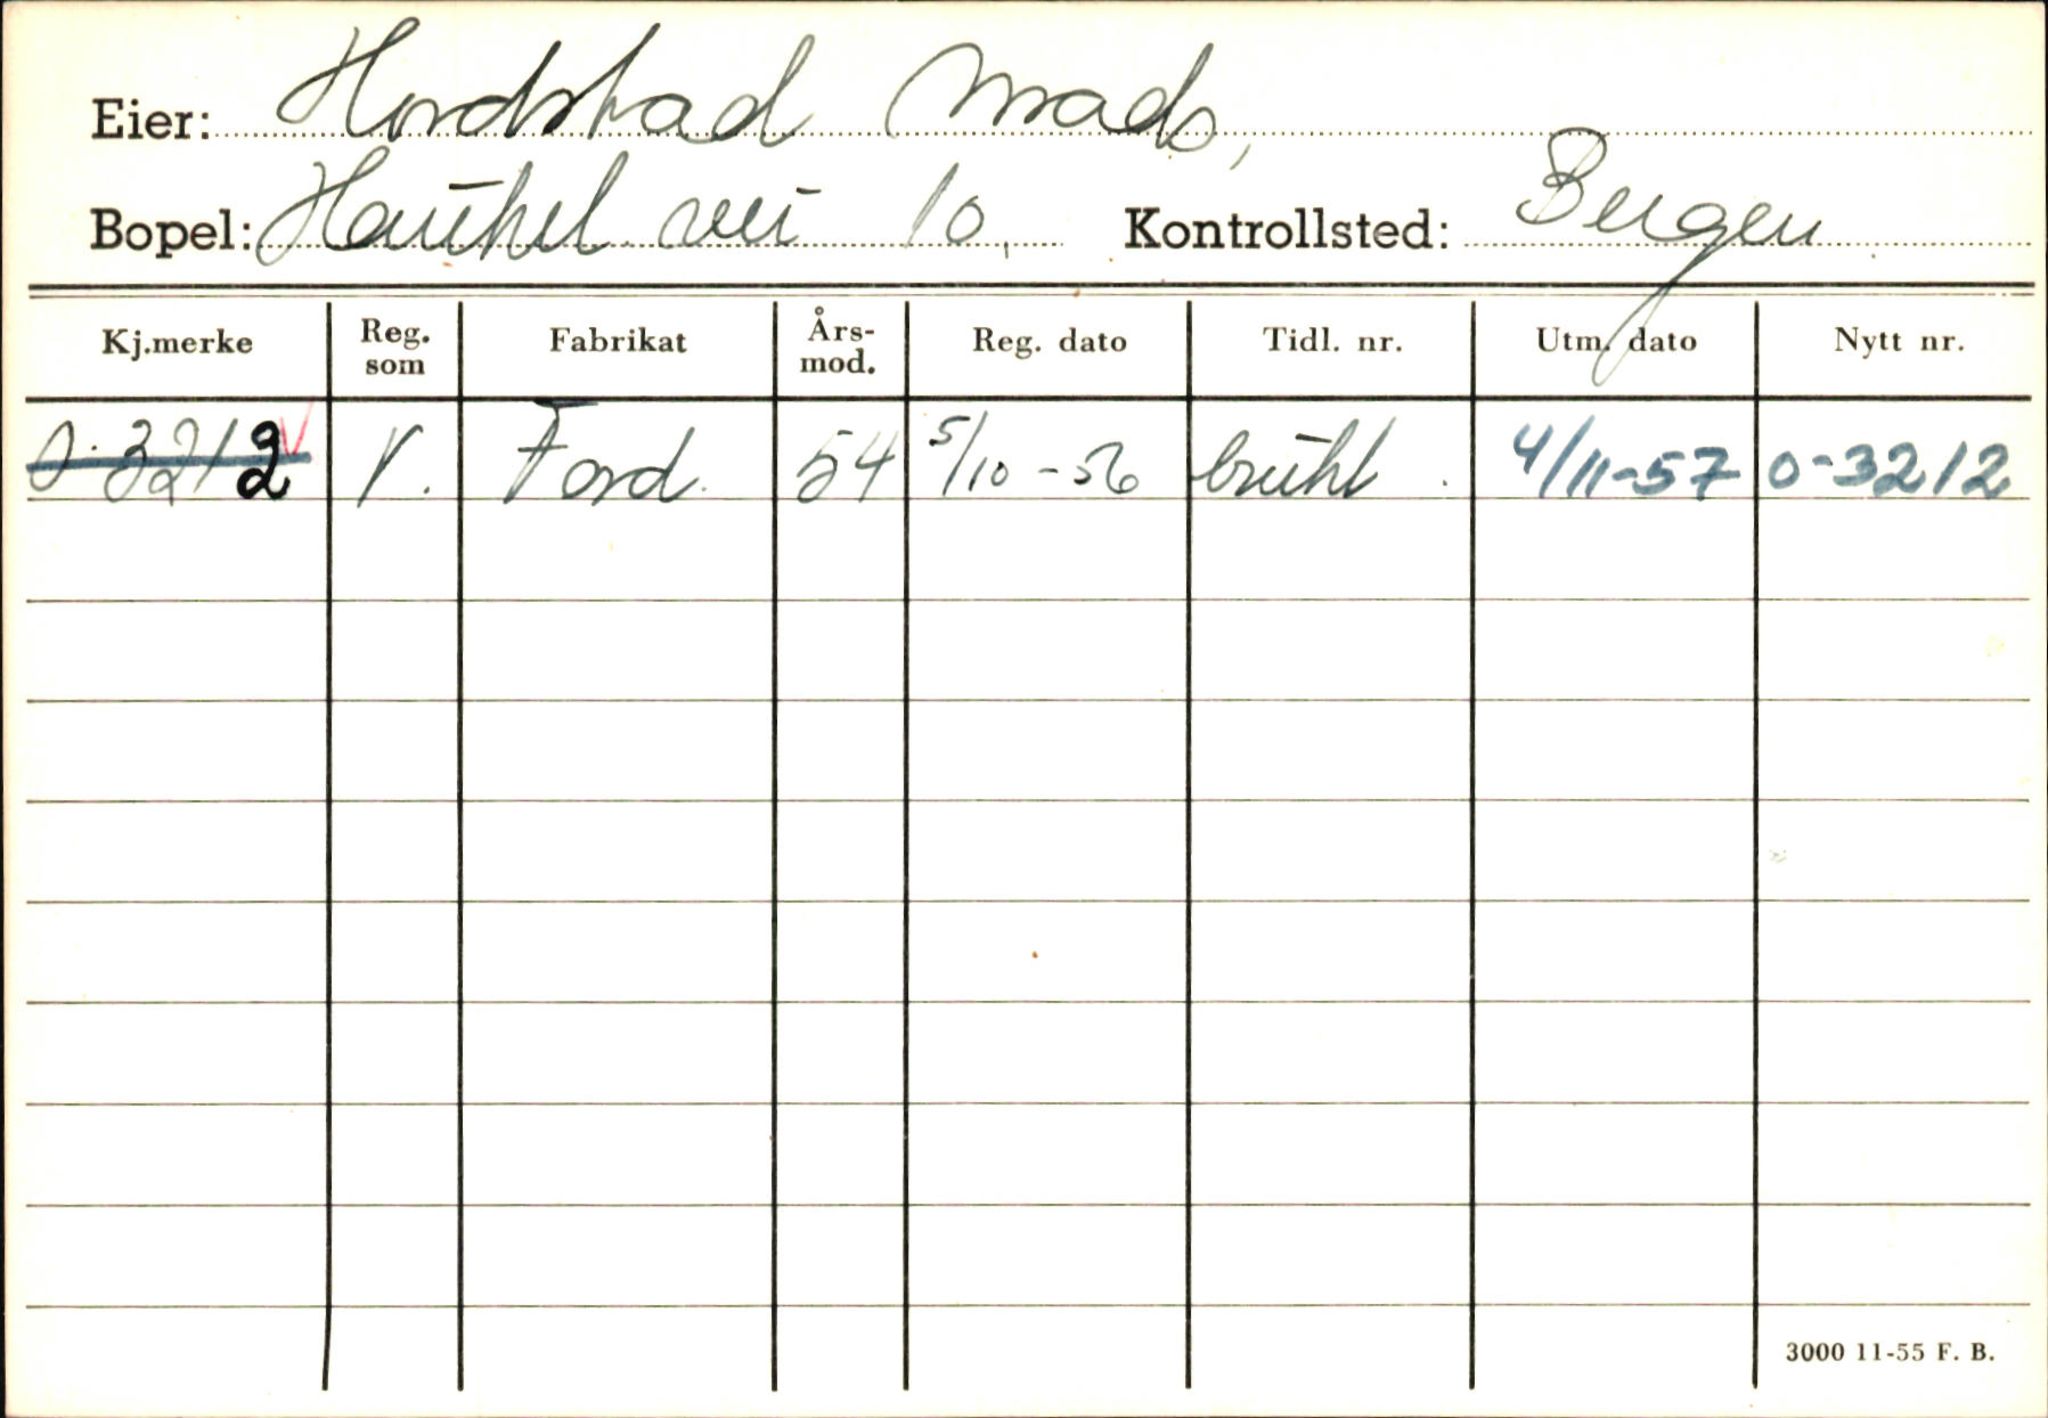 Eier: Hordstad Mads,
Bopel: Haukel vei 10. Kontrollsted: Bergen
Kj.merke Reg. som Fabrikat Års-mod. Reg. dato Tidl. nr. Utm. dato Nytt nr.
O-3212 V V. Ford. 54 5/10-56 brukt. 4/11-57 O-3212
3000 11-55 F. B.